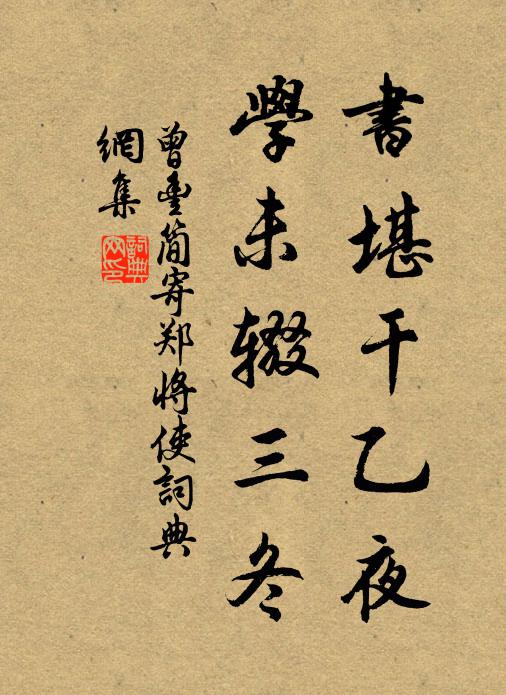 書堪干乙夜
學未辍三冬
曾豐简寄郑將使詞典
網集
詞典
网印